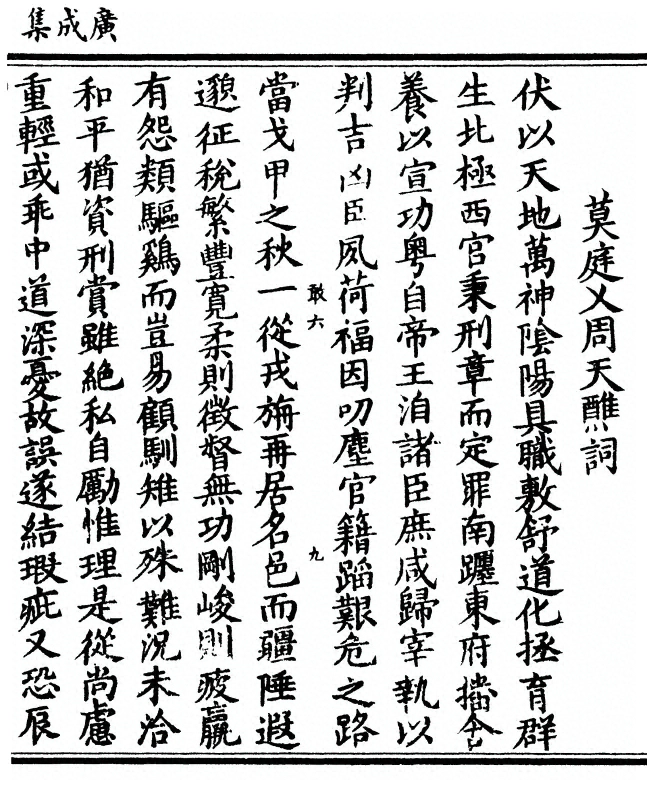 廣成集
莫庭乂周天醮詞
伏以天地萬神陰陽具職敷舒道化拯育群
生北極西宮秉刑章而定罪南躔東府擋含
養以宣功粵自帝王洎諸臣庶咸歸宰執以
判吉凶臣夙荷福因叨塵官籍蹈艱危之路
敢六
九
當戈甲之秋一從戎旃再居名邑而疆陲遐
邈征稅繁豐寬柔則徵督無功剛峻則疲羸
有怨類驅鷄而豈易顧馴雉以殊難況未洽
和平猶資刑賞雖絕私自勵惟理是從尚慮
重輕或乖中道深憂故誤遂結瑕疵又恐辰